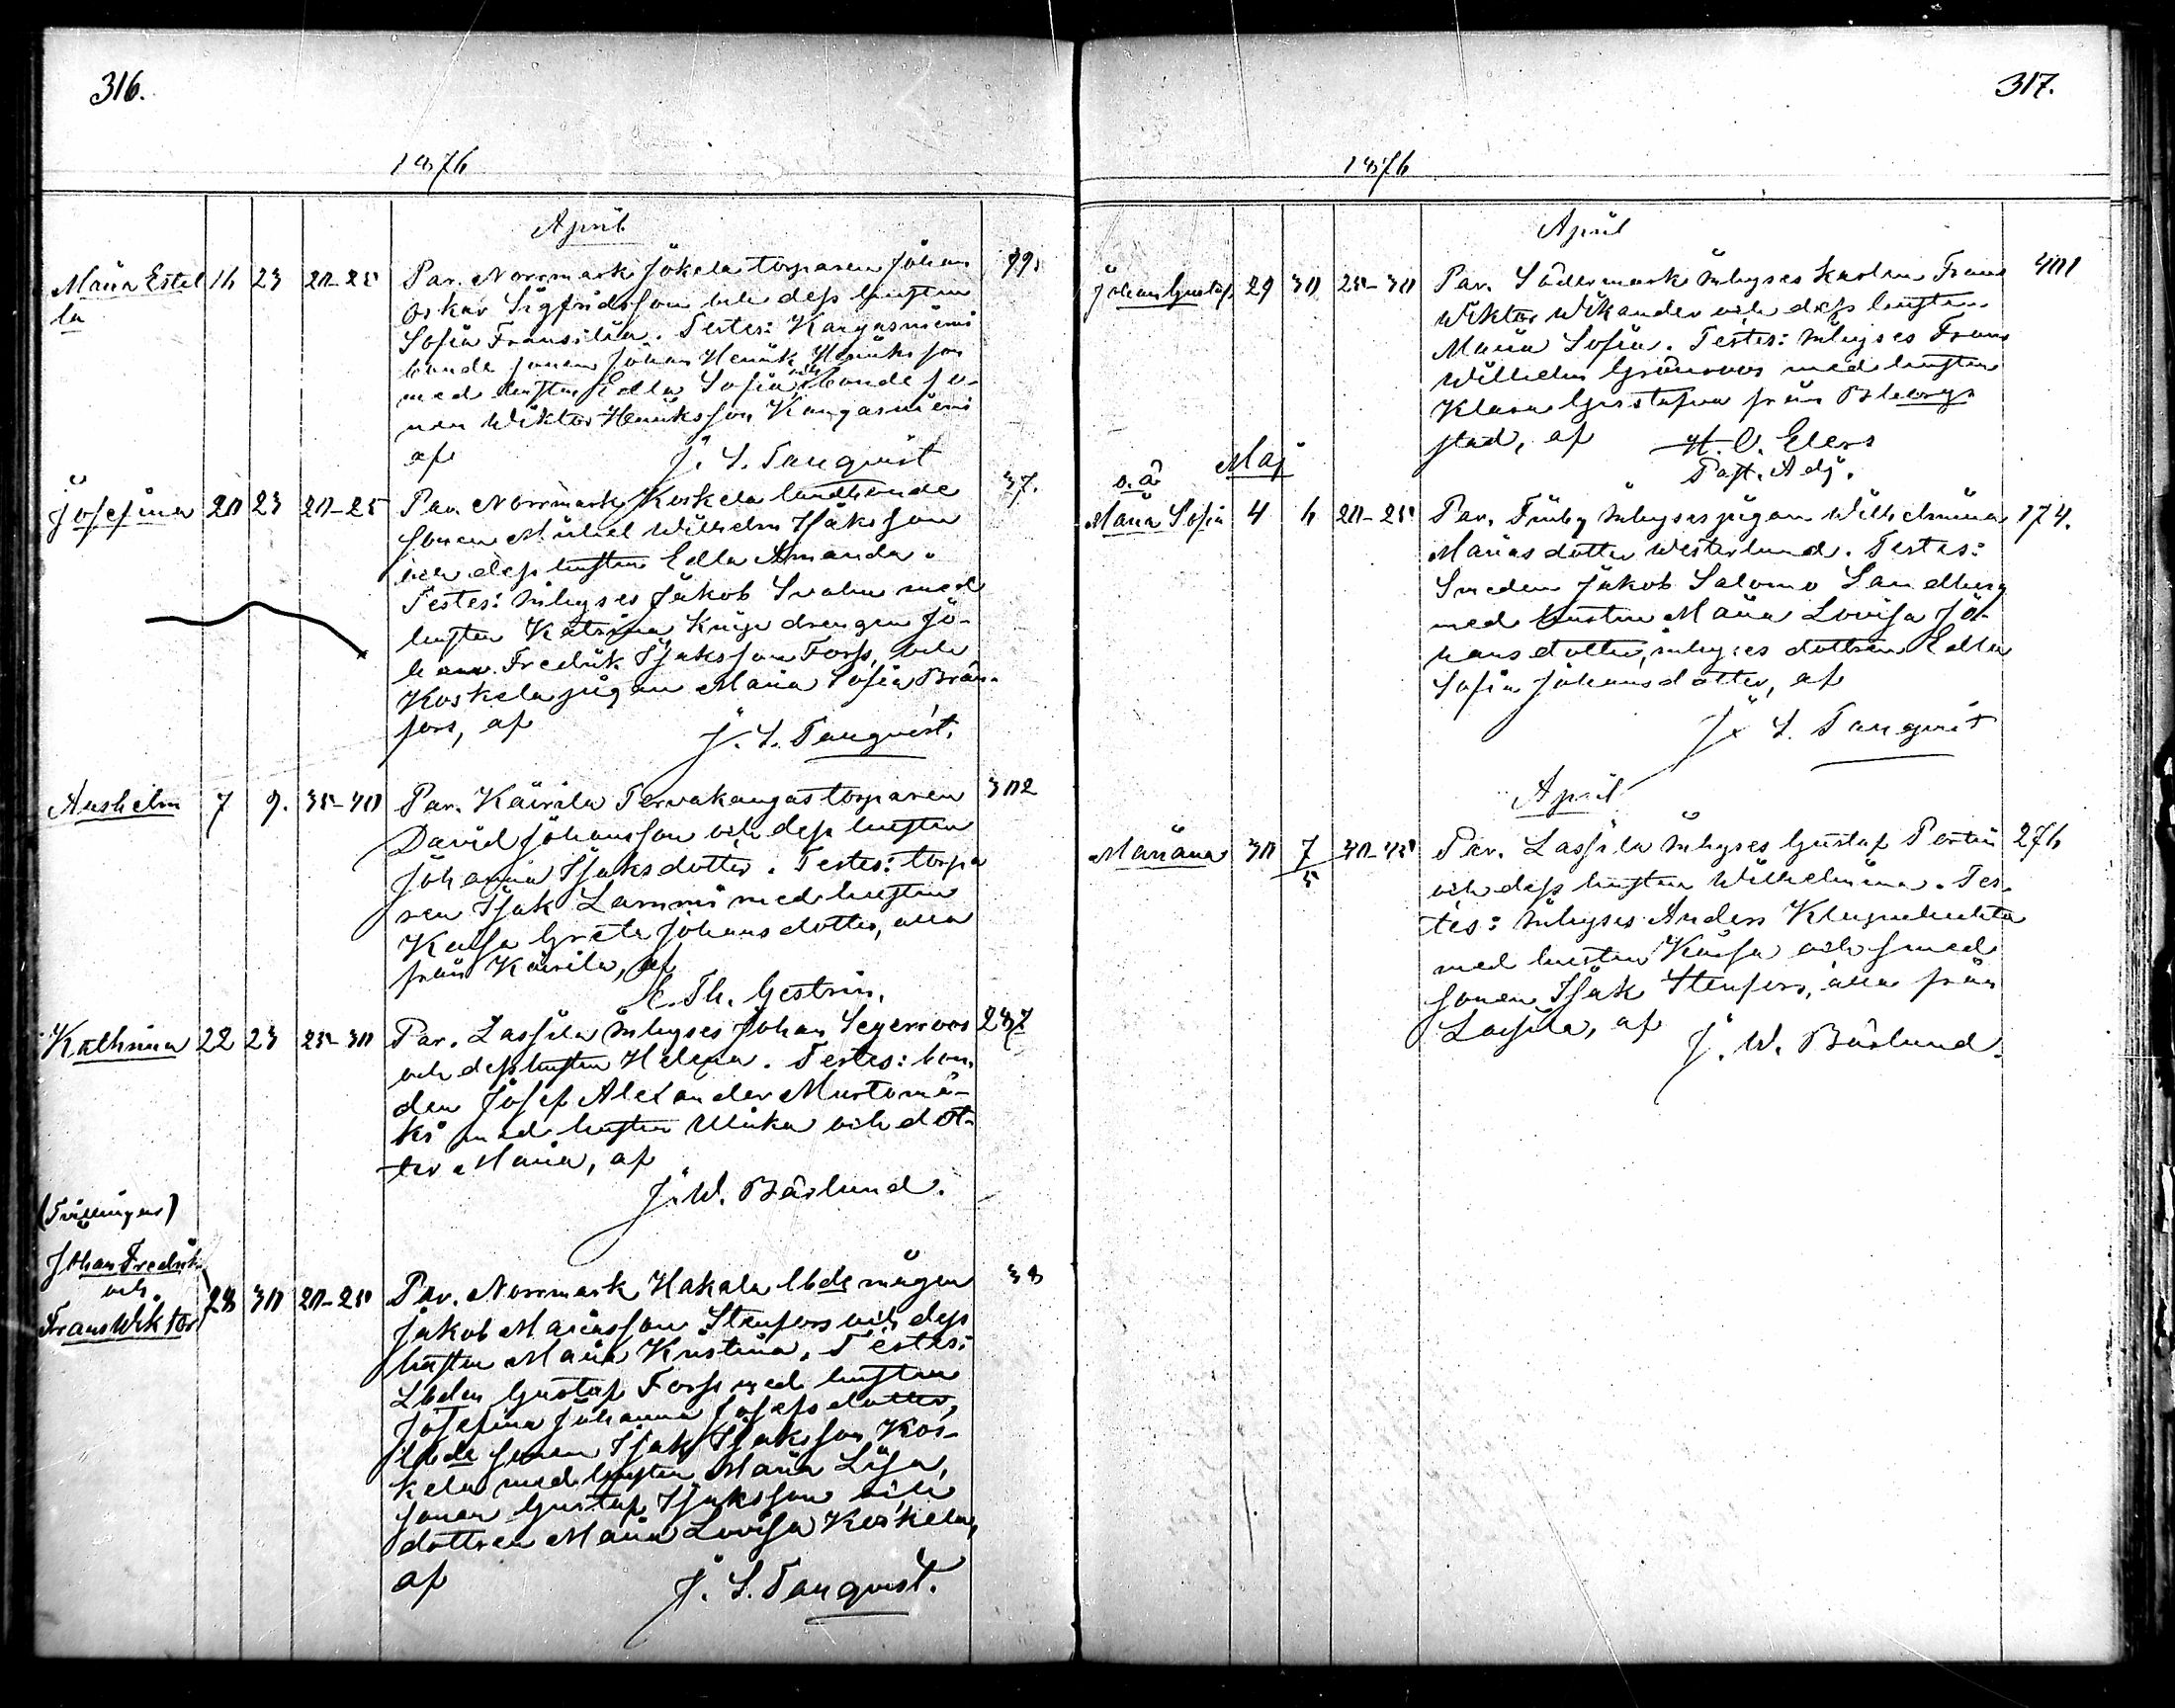 316.
1876
April
Maria Estel 16 23 20-25 Par. Norrmark Jokela torparen Johan 99.
la Oskar Sigfridsson och dess hustru
Sofia Fransilia. Testes: Kangasniemi
bonde sonen Johan Henrik Henriksson
med hustru Edla Sofia och bonde so-
nen Wiktor Henriksson Kangasniemi
af J. S. Tanqvist
Josefina 20 23 20-25 Par. Norrmark Koskela landbonde 37.
sonen Mikel Wilhelm Isaksson
och dess hustru Edla Amanda.
Testes: Inhyses Jakob Svahn med
hustru Katrina, drengen Jo-
han Fredrik Isaksson Forss, och
Koskela pigan Maria Sofia Brän-
fors, af J. S. Tanqvist.
Anshelm 7 9. 35-40 Par. Kairila Tervakangas torparen 302
David Johansson och dess hustru
Johanna Isaksdotter. Testes: torpa
ren Isak Lammi med hustru
Kajsa Greta Johansdotter, alla
från Kairila, af
K. Th. Gestrin.
Kathrina 22 23 25-30 Par. Lassila Inhyses Johan Segerroos 287
och dess hustru Helena. Testes: bon-
den Josef Alexander Mustomä-
ki med hustru Ulrika och dot-
ter Maria, af
J. W. Båslund.
(Tvillingar)
Johan Fredrik
och 28 30 20-25 Par. Norrmark Hakala lbde mågen 38
Frans Wiktor Jakob Mariasson Stenfors och dess
hustru Maria Kristina. Testes:
Lbden Gustaf Forss med hustru
Josefina Johanna Josefsdotter,
lbde sonen Isak Isaksson Kos-
kela med hustru Maria Lisa,
sonen Gustaf Isaksson och
dottren Maria Lovisa Koskela,
af J. S. Tanqvist.
317.
1876
April
Johan Gustaf 29 30 25-30 Par. Södermark Inhyses karlen Frans 401
Wiktor Wikander och dess hustru
Maria Sofia. Testes: Inhyses Frans
Wilhelm Grönroos med hustru
Klara Gustafva från Bborgs
stad, af H. O. Elers
Past. Adj.
o.ä. Maj
Maria Sofia 4 6 20-25 Par. Finby Inhyses pigan Wilhelmina 174.
Mariasdotter Westerlund. Testes:
Smeden Jakob Salomo Sandberg
med hustru Maria Lovisa Jo-
hansdotter, inhyses dottren Edla
Sofia Johansdotter, af
J. S. Tanqvist
April
Mariana 30 7/5 40-45 Par. Lassila Inhyses Gustaf Pertin 276
och dess hustru Wilhelmina. Tes-
tes: Inhyses Anders
med hustru Kajsa och smed
sonen Isak Stenfors, alla från
Lassila, af J. W. Båslund.